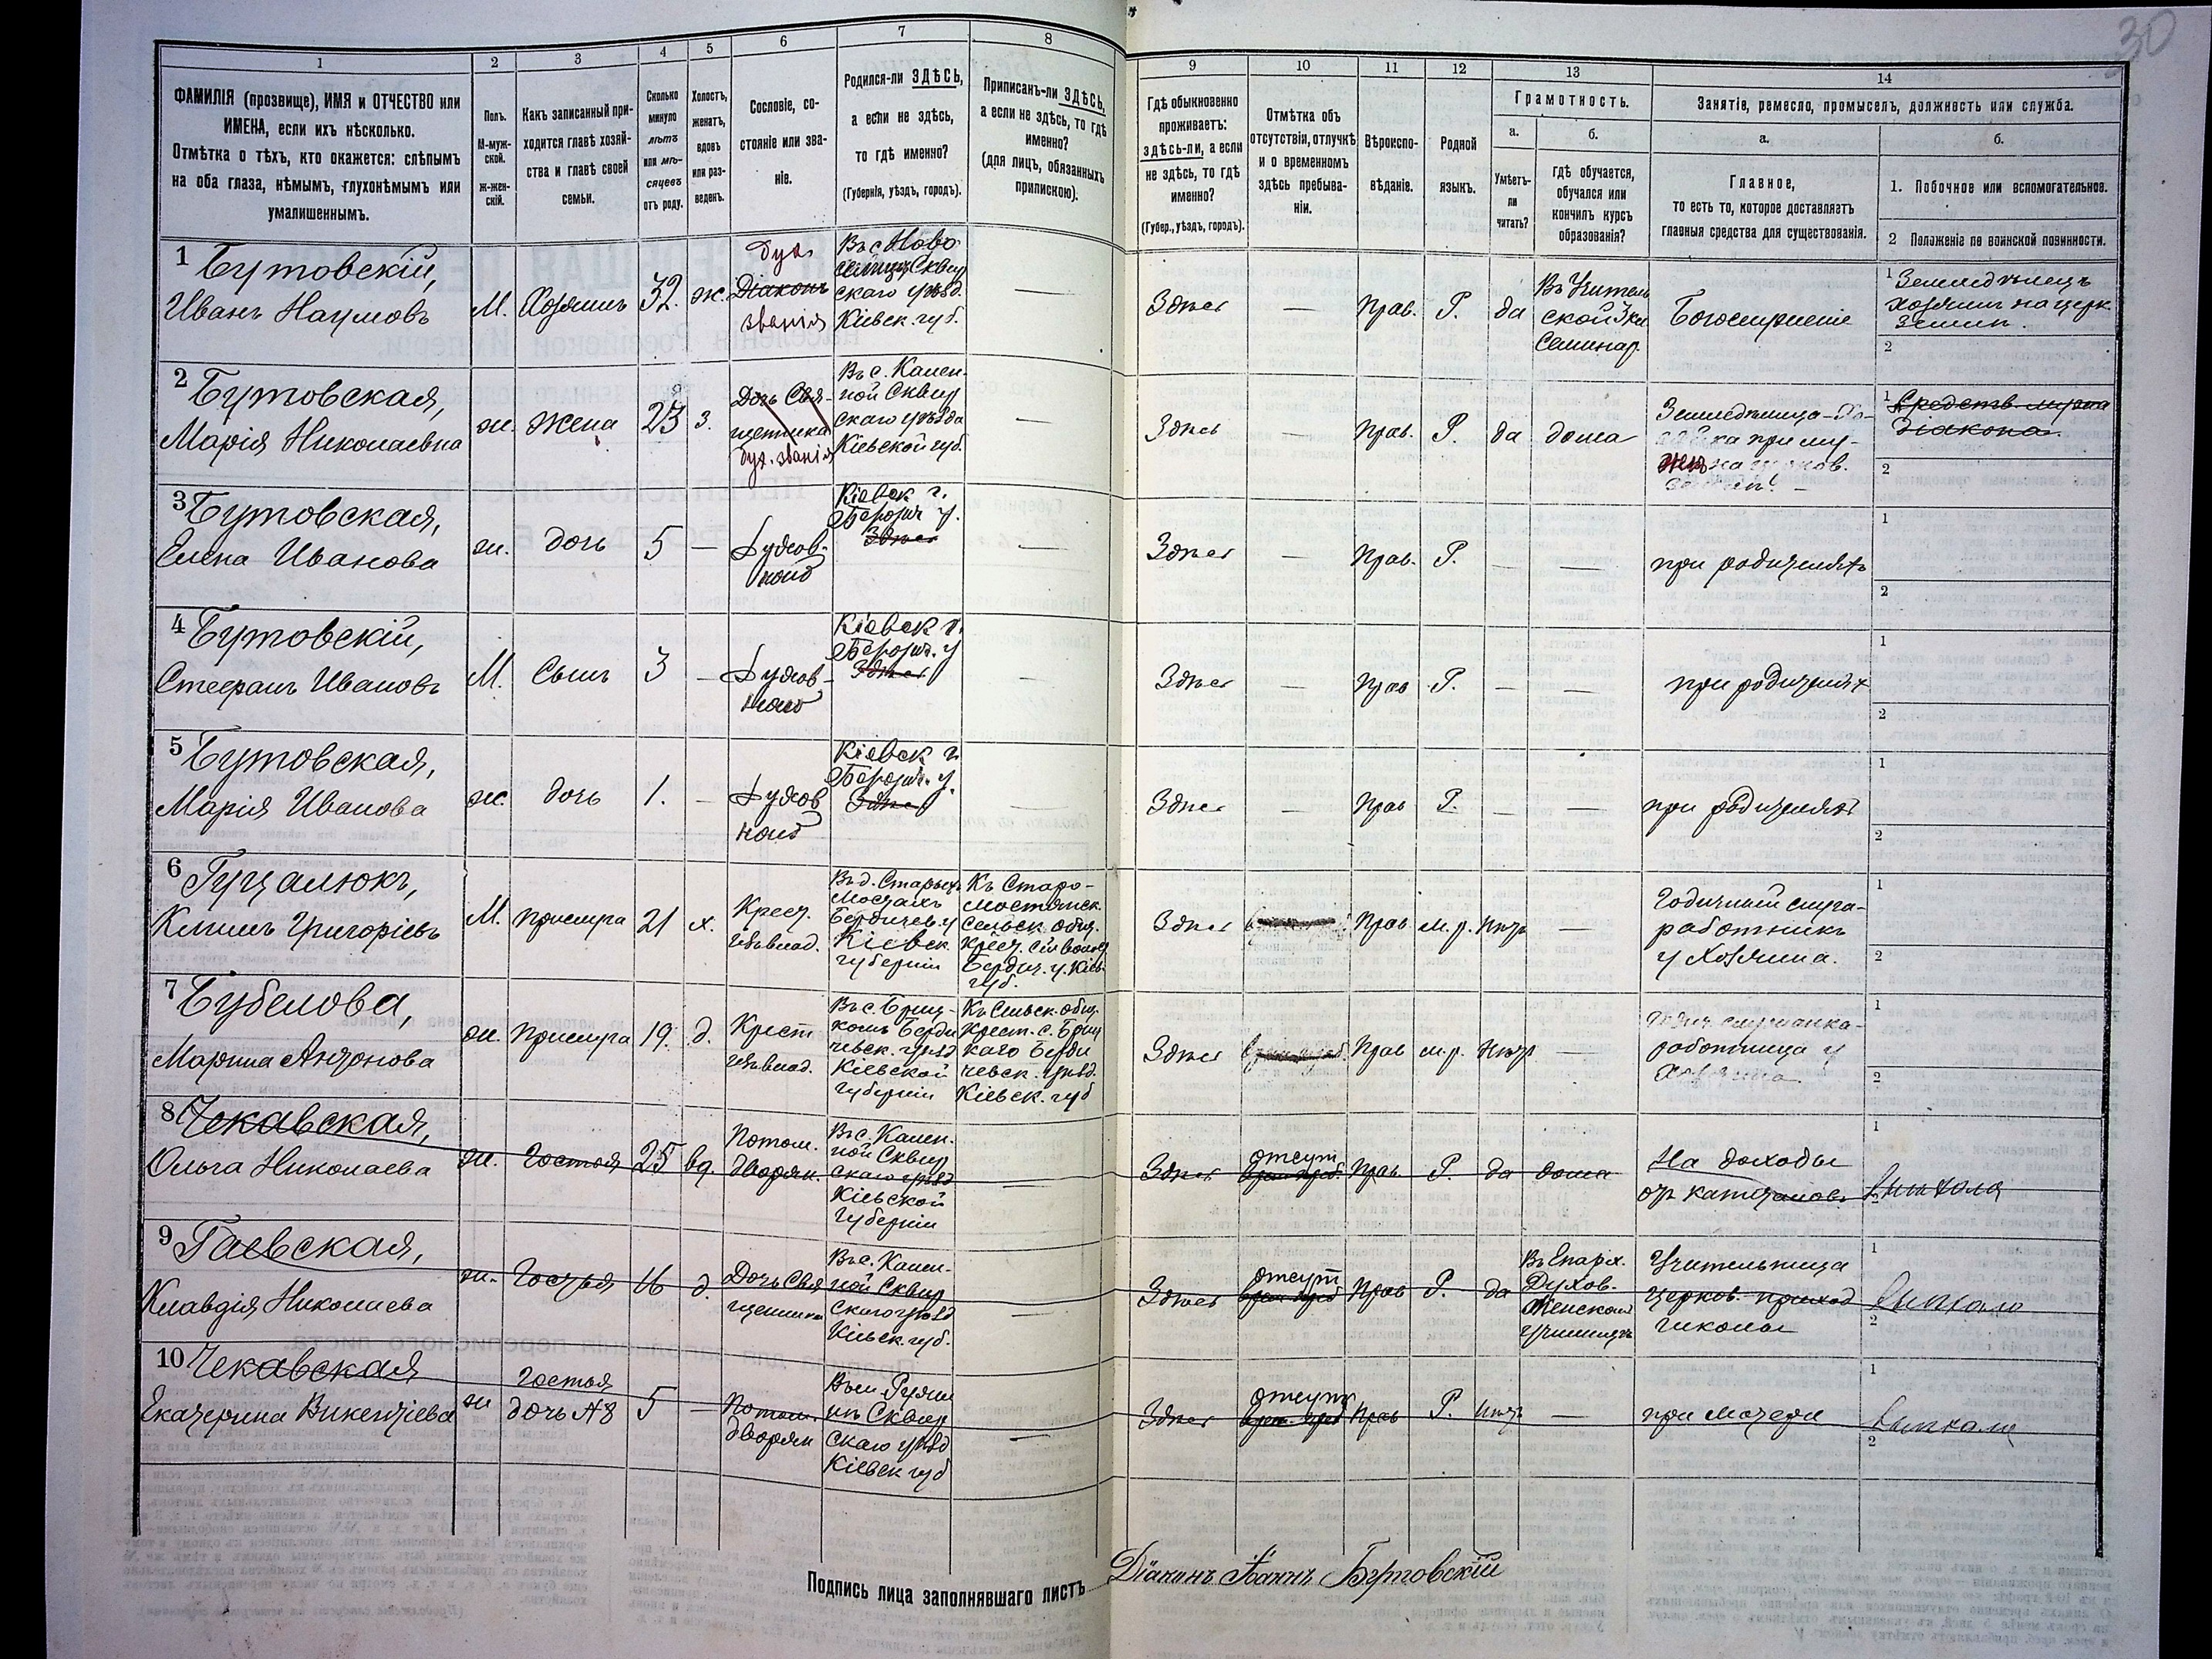 30
1
2
3
4
5
6
7
8
9
10
11
12
13
14
ФАМИЛІЯ (прозвище), ИМЯ и ОТЧЕСТВО или
ИМЕНА, если ихъ нѣсколько.
Отмѣтка о тѣхъ, кто окажется: слѣпымъ
на оба глаза, нѣмымъ, глухонѣмымъ или
умалишеннымъ.
Полъ.
М-муж-
ской.
ж-жен-
скій.
Какъ записанный при-
ходится главѣ хозяй-
ства и главѣ своей
семьи.
Сколько
минуло
лѣтъ
или мѣ-
сяцевъ
отъ роду.
Холостъ,
женатъ,
вдовъ
или раз-
веденъ.
Сословіе, со-
стояніе или зва-
ніе.
Родился-ли ЗДѢСЬ,
а если не здѣсь,
то гдѣ именно?
(Губернія, уѣздъ, городъ).
Приписанъ-ли ЗДѢСЬ,
а если не здѣсь, то гдѣ
именно?
(для лицъ, обязанныхъ
припискою).
Гдѣ обыкновенно
проживаетъ:
здѣсь-ли, а если
не здѣсь, то гдѣ
именно?
(Губер., уѣздъ, городъ).
Отмѣтка объ
отсутствіи, отлучкѣ
и о временномъ
здѣсь пребыва-
ніи.
Вѣроиспо-
вѣданіе.
Родной
языкъ.
Грамотность.
а.
Умѣетъ-
ли
читать?
б.
гдѣ обучается,
обучался или
кончилъ курсъ
образованія?
Занятіе, ремесло, промыселъ, должность или служба.
а.
Главное,
то есть то, которое доставляетъ
главныя средства для существованія.
б.
1. Побочное или вспомогательное.
2 Положеніе по воинской повинности.
1 Бутовскій,
Иванъ Наумовъ
М.
Хозяинъ
32.
ж.
дух.
Діаконъ
званія
Въ с. Ново-
Сквир
скаго уѣзд.
Кіевск. губ.
—
Здѣсь
—
Прав.
Р.
да
Въ Учитель
ской
Семинар.
Богослуженіе
1 Земледѣлецъ
хозяинъ на церк.
земли.
2
2 Бутовская,
Марія Николаевна
ж.
жена
23
з.
Дочь Свя-
щенника
дух. званія
Въ с. Камен-
ной Сквир
скаго уѣзда
Кіевской губ.
—
Здѣсь
—
Прав.
Р.
да
дома
Земледѣлица-Хо-
зяйка при му-
жѣ на церков.
земли. —
1 Средств. мужа
діакона.
2
3 Бутовская,
Елена Иванова
ж.
дочь
5
—
Духов-
наго
Кіевск г.
Бердич у.
Здѣсь
—
Здѣсь
—
Прав.
Р.
—
—
при родителяхъ
1
2
4 Бутовскій,
Стефанъ Ивановъ
М.
Сынъ
3
—
Духов-
наго
Кіевск г.
Бердич. у
Здѣсь
—
Здѣсь
—
Прав
Р.
—
—
при родителях
1
2
5 Бутовская,
Марія Иванова
ж.
дочь
1.
—
Духов
наго
Кіевск г.
Бердич. у.
Здѣсь
—
Здѣсь
—
Прав
Р.
—
—
при родителях
1
2
6 Гуцалюкъ,
Климъ Григорьевъ
М.
прислуга
21
х.
Крест.
изъ влад.
Въ д. Старыхъ
Мостахъ
Бердичев. у
Кіевск.
губерніи
Къ Старо-
мостянск.
сельск. общ.
крест.
Бердич. у. Кіев.
губ.
Здѣсь
Прав
м.р.
нѣтъ
—
Годичный слуга-
работникъ
у Хозяина.
1
2
7 Бубелова,
Марина Антонова
ж.
Прислуга
19.
д.
Крест
изъ влад.
Въ с.
Берди
чевск. уѣзд
Кіевской
губерніи
Къ Сельск. общ.
крест. с.
Берди
чевск. уѣзд.
Кіевск. губ
Здѣсь
Прав
м.р.
нѣтъ
—
Годич. служанка-
работница у
Хозяина
1
2
8 Чекавская,
Ольга Николаева
ж.
Гостья
25
вд.
Потом.
дворян.
Въ с. Камен-
ной Сквир
скаго уѣзд
Кіевской
губерніи
—
Здѣсь
отсут
врем. преб.
Прав
Р.
да
дома
На доходы
отъ капиталов.
1
выѣхала
9 Гаевская,
Клавдія Николаева
ж.
Гостья
16
д.
Дочь Свя
щенника
Въ с. Камен-
ной Сквир
скаго уѣзд
Кіевск. губ.
—
Здѣсь
отсут
врем преб
Прав
Р.
да
Въ Епарх.
Духов.
Женском
училищѣ
Учительница
церков. приход
школы
1
выѣхала
2
10 Чекавская
Екатерина Викентіева
ж
гостья
дочь №8
5
—
Потом.
дворян
Въ м. Ружи
нѣ Сквир
скаго уѣзд
Кіевск губ
—
Здѣсь
отсут
врем. преб
Прав
Р.
нѣтъ
—
при матери
1
выѣхала
2
Подпись лица заполнявшаго листъ
Діаконъ Іоаннъ Бутовскій